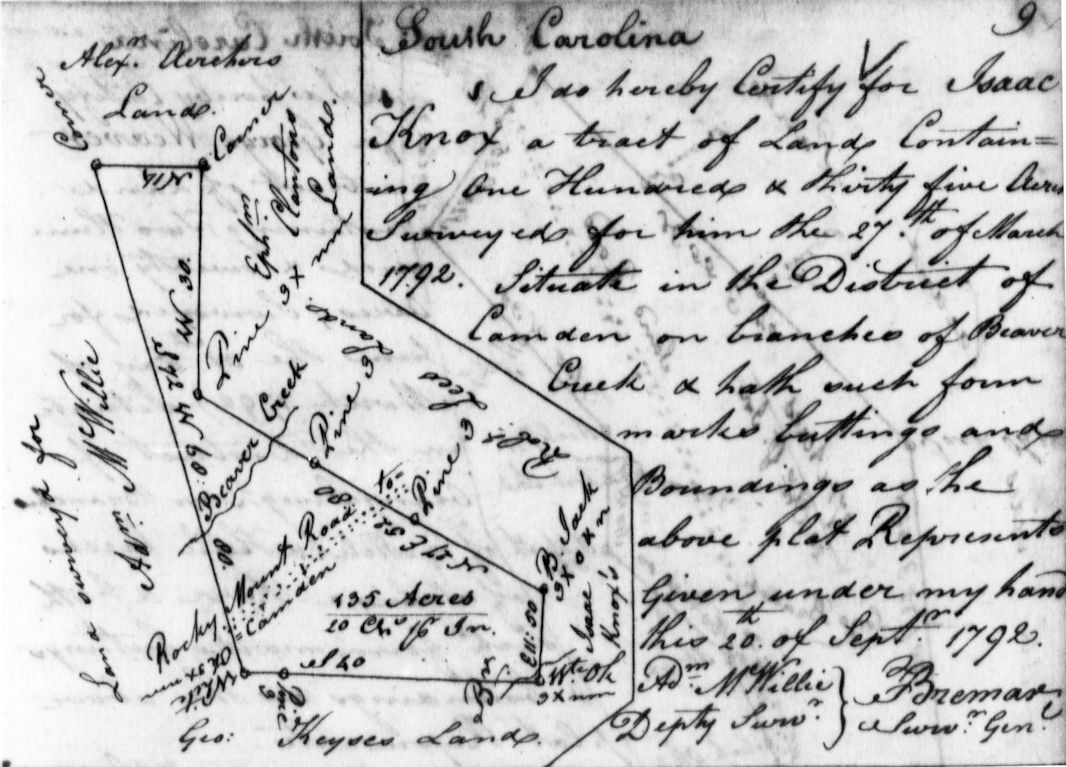 9
South Carolina
I do hereby Certify for Isaac
Knox a tract of Land Contain=
ing One Hundred & thirty five Acres
Surveyed for him the 27.th of March
1792. Situate in the District of
Camden on branches of Beaver
Creek & hath such form
marks buttings and
Boundings as the
above plat Represents
Given under my hand
this 20.th of Septr. 1792.
Adm McWillie
Depty Survr.
F Bremar
Survr. Genl.
Alexr.
Land.
Corner
Corner
N14
W 30.
Ephm
Land.
Pine 3x
Land surveyd for
Adm McWillie
Beaver Creek
Pine 3
Pine 3
Land
Lees
Rocky Mount Road
Camden
135 Acres
20 Chs. pr In.
B. Jack
3x0
Isaac
Knox's
E11:00
Wt. Ok
3x
Br
S 40
Pine 3
Geo: Keyses Land.